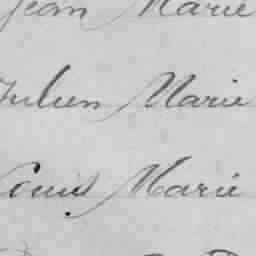 Jean Marie
Julien Marie
Louis Marie